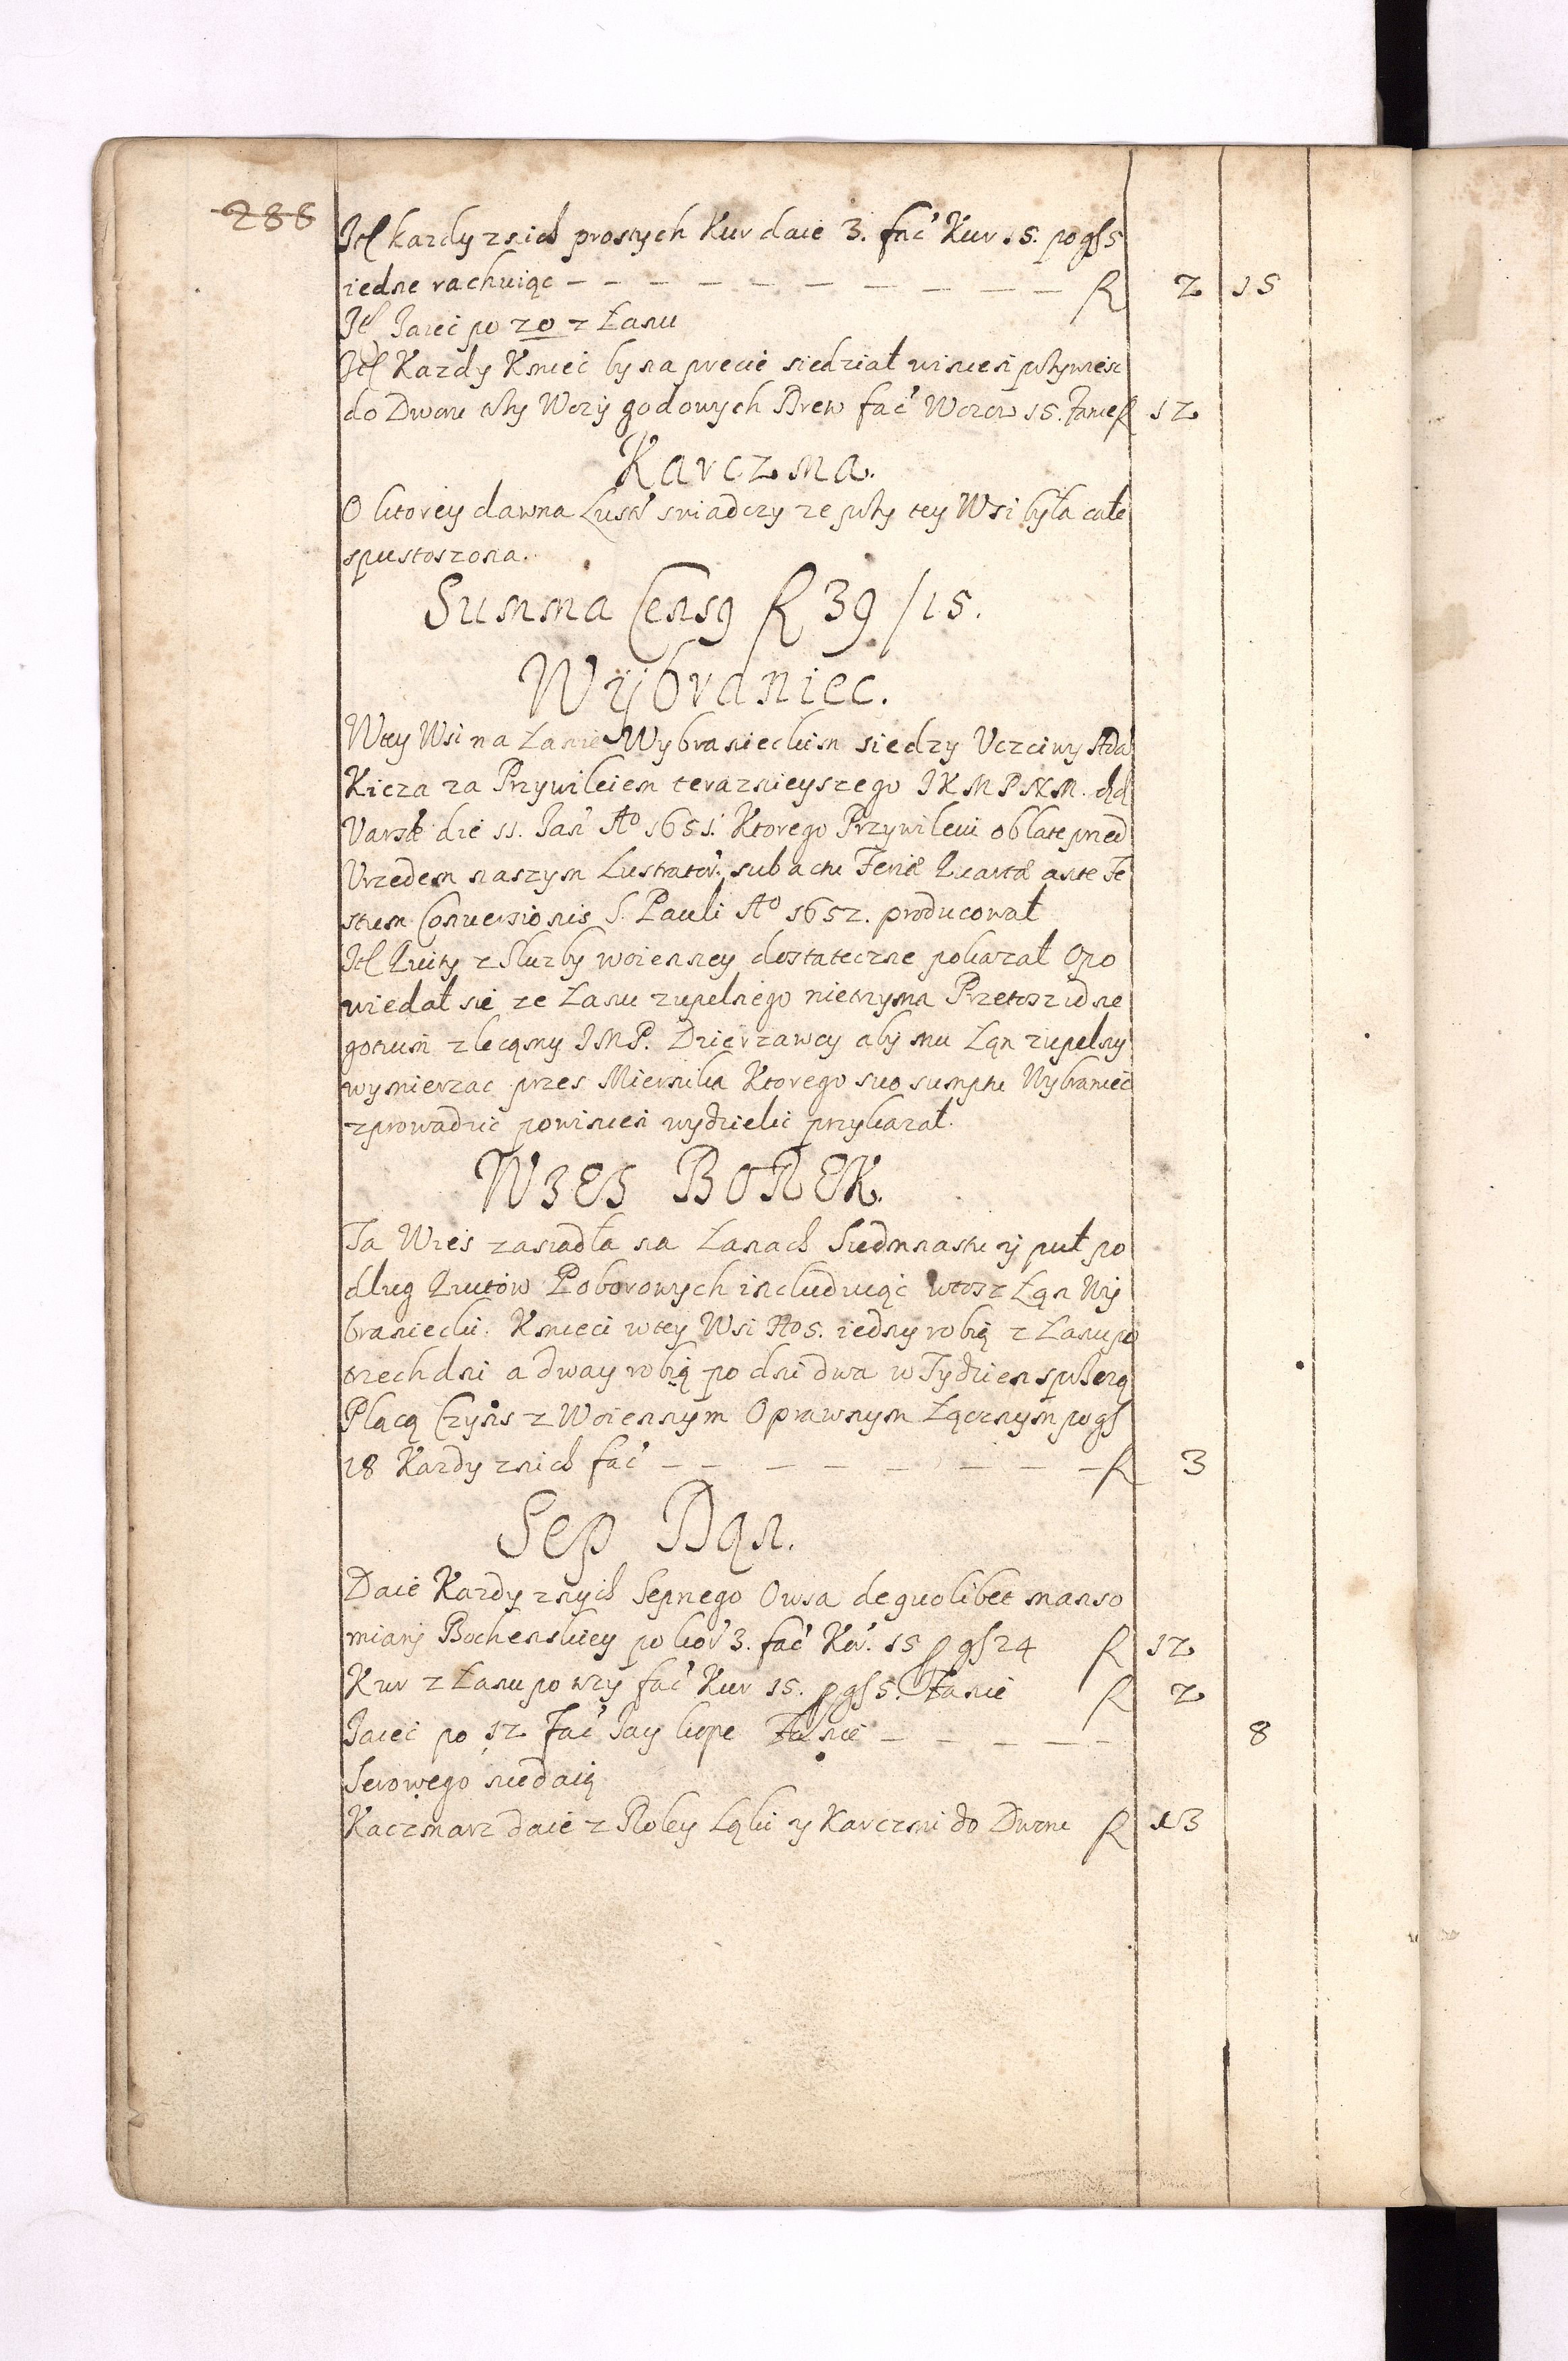 288
Itl kazdy z nich prostych Kur daie 3. fac Kur 15. po gs 5
iedne rachuiąc — — — — — — — — — — R 2 15
Itl Jaiec po 20 z Łanu
Itl Kazdy Kmiec by na precie siedział winien
do Dworu Wozy godowych Drew fac Wozow 15. R 12
Karczma.
O ktorey dawna Lustr swiadczy ze przy tey Wsi była cale
spustoszona.
Summa Cens9 R 39/15.
Wÿbraniec.
W tey Wsi na Łanie Wybranieckim siedzy Uczciwy Ada
Kicza za Przywileiem terazniejszego JKMPNM. dd
Varsae die 11. Jan Ao 1651. Ktorego Przywileiu oblate przed
Urzedem naszym Lustrator. sub actu Feria Quarta ante Fe
stum Conuersionis S. Pauli Ao 1652. producował
Itl Quity z Sluzby woienney dostateczne pokazał Opo
wiedał sie ze Łanu zupelnego nietrzyma Przetosz id ne
gotium zlecamy JMP. Dzierzawcy aby mu Łąn zupelny
wymierzac przes Miernika Ktorego suo sumptu Wybraniec
zprowadzic powinien wydzielic przykazał.
WSES BOREK.
Ta Wies zasiadła na Łanach Siedmnastu ÿ puł po
dlug Quitow Poborowych includuiąc wtosz Łąn Wÿ
braniecki. Kmieci wtey Wsi No 5. iedny robią z Łanu po
trzech dni a dway robią po dni dwa w Tydzien
Płacą Czyns z Woiennym Oprawnym Łącznym po gs
18 Kazdy z nich fac — — — — — — — — R 3
Sep Dąn.
Daie Kazdy z nych Sepnego Owsa de quolibet manso
miarÿ Bochenskiey po kor 3. fac Kor. 15 p gs 24 R 12
Kur z Łanu po trzy fac Kur 15. p gs 5. R 2
Jaiec po 12 fac Jay kope — — — — — 8
Serowego niedaią
Kaczmarz daie z Roley Łąki ÿ Karczmi do Dworu R 13